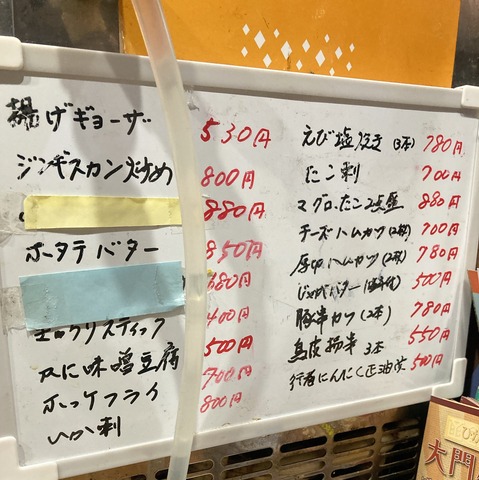 揚げギョーザ 530円
ジンギスカン炒め 800円
880円
ホタテバター 850円
680円
スティック 400円
味噌豆腐 500円
ホッケフライ 700円
いか刺 800円
えび塩焼き (3本) 780円
たこ刺 700円
マグロ、たこ2点盛 880円
チーズハムカツ (2枚) 700円
厚切ハムカツ (2枚) 780円
じゃがバター 500円
豚串カツ (2本) 780円
鳥皮揚串 3本 550円
行者にんにく正油 500円
大門